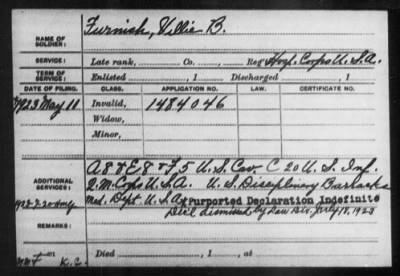 NAME OF SOLDIER: Furnish, Villie B.
SERVICE: Late rank, Co. , Reg't Hosp. Corps U.S.A.
TERM OF SERVICE: Enlisted , 1 Discharged , 1
DATE OF FILING. CLASS. APPLICATION NO. LAW. CERTIFICATE NO.
1923 May 11 Invalid, 1484046
Widow,
Minor,
A & E 8 & F, 5 U.S. Cav. C 20 U.S. Inf.
ADDITIONAL SERVICES: Q.M. Corps U.S.A. U.S. Disciplinary Barracks
Med. Dept. U.S.A. (Purported Declaration Indefinite
Decl dismissed by Law Div. July 18, 1923
REMARKS:
Died , 1 , at
K.C.